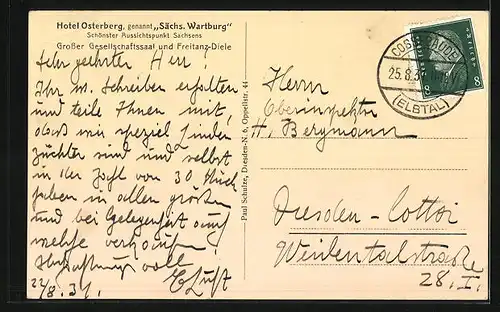 Hotel Osterberg, genannt „Sächs. Wartburg"
Schönster Aussichtspunkt Sachsens
Großer Gesellschaftssaal und Freitanz-Diele
Sehr geehrter Herr!
Ihr w. Schreiben erhalten
und teile Ihnen mit,
daß wir speziel
züchter sind und selbst
in der Zahl von 30 Stück
haben in allen größen
und bei Gelegenheit auch
welche verkaufen.
Hochachtung voll
E. Luft
22/8.31.
Paul Schulze, Dresden-N. 6, Oppellstr. 44
COSSEBAUDE
25.8.31
(ELBTAL)
8
8
Herrn
Oberinspektor
H. Bergmann
Dresden-Cotta
Weidentalstraße
28. I.